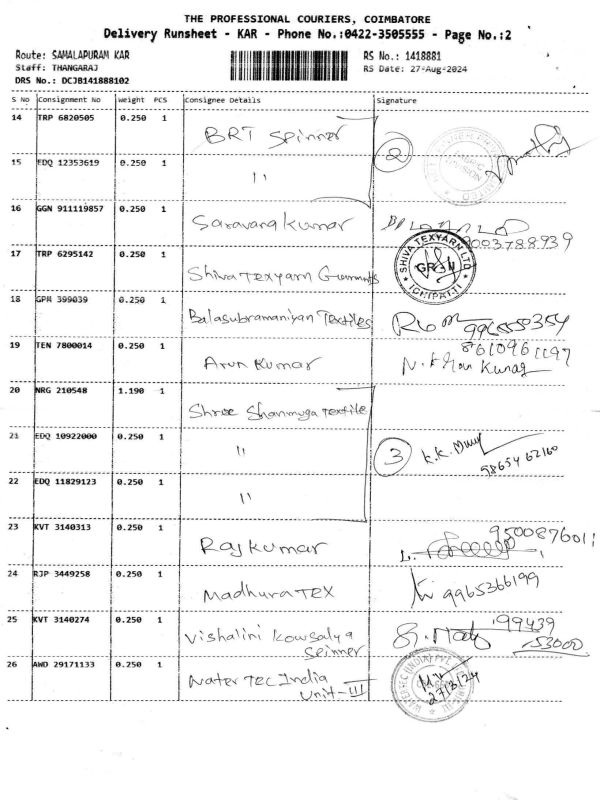 THE PROFESSIONAL COURIERS, COIMBATORE
Delivery Runsheet - KAR - Phone No.:0422-3505555 - Page No.:2
Route: SAMALAPURAM KAR
Staff: THANGARAJ
DRS No.: DCJB141888102
RS No.: 1418881
RS Date: 27-Aug-2024
S No Consignment No Weight PCS Consignee Details Signature
14 TRP 6820505 0.250 1 BRT Spinner
2
15 EDQ 12353619 0.250 1 "
16 GGN 911119857 0.250 1 Saravana Kumar
9003788939
17 TRP 6295142 0.250 1 Shiva Texyarn Garments
SHIVA TEXYARN LTD
18 GPM 399039 0.250 1 Balasubramaniyan Textiles
19 TEN 7800014 0.250 1 Arun Kumar
8610961197
20 NRG 210548 1.190 1 Shree Shanmuga Textile
21 EDQ 10922000 0.250 1 "
3
98654 62160
22 EDQ 11829123 0.250 1 "
23 KVT 3140313 0.250 1 Raj Kumar
9500876011
24 RJP 3449258 0.250 1 Madhura TEX
9965366199
25 KVT 3140274 0.250 1 Vishalini Kowsalya
Spinner
99439
53000
26 AWD 29171133 0.250 1 Water Tec India
Unit-III